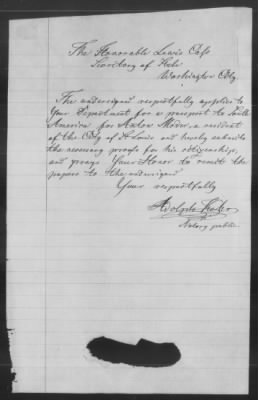 The Honorable Lewis Cass
Secretary of State
Washington City
The undersigned respectfully applies to
Your Department for a passport to South
America for a resident
of the City of St Louis and hereby submits
the necessary proofs for his citizenship,
and prays Your Honor to remit the
papers to the undersigned
Your respectfully
Adolph
Notary public